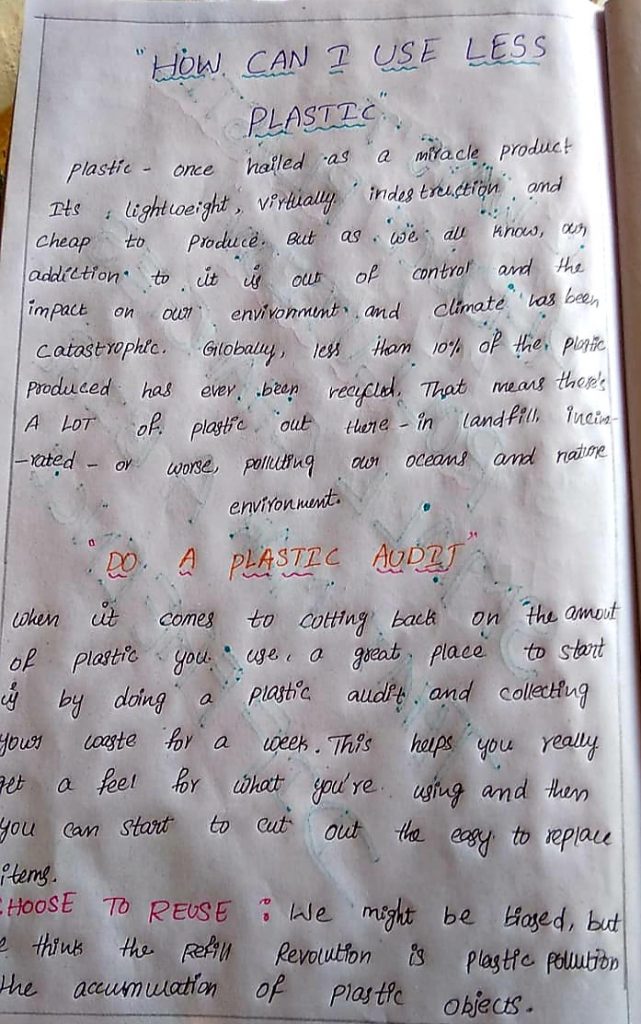 "HOW CAN I USE LESS
PLASTIC"
Plastic - once hailed as a miracle product
Its lightweight, virtually indestruction and
cheap to produce. But as we all know, our
addiction to it is out of control and the
impact on our environment and climate has been
catastrophic. Globally, less than 10% of the plastic
produced has ever been recycled. That means there's
A LOT of plastic out there - in landfill, incin-
-rated - or worse, polluting our oceans and nature
environment.
"DO A PLASTIC AUDIT"
When it comes to cotting back on the amout
of plastic you use, a great place to start
is by doing a plastic audit and collecting
your waste for a week. This helps you really
get a feel for what you're using and then
you can start to cut out the easy to replace
items.
CHOOSE TO REUSE : We might be biased, but
think the Refill Revolution is plastic pollution
the accumulation of plastic objects.